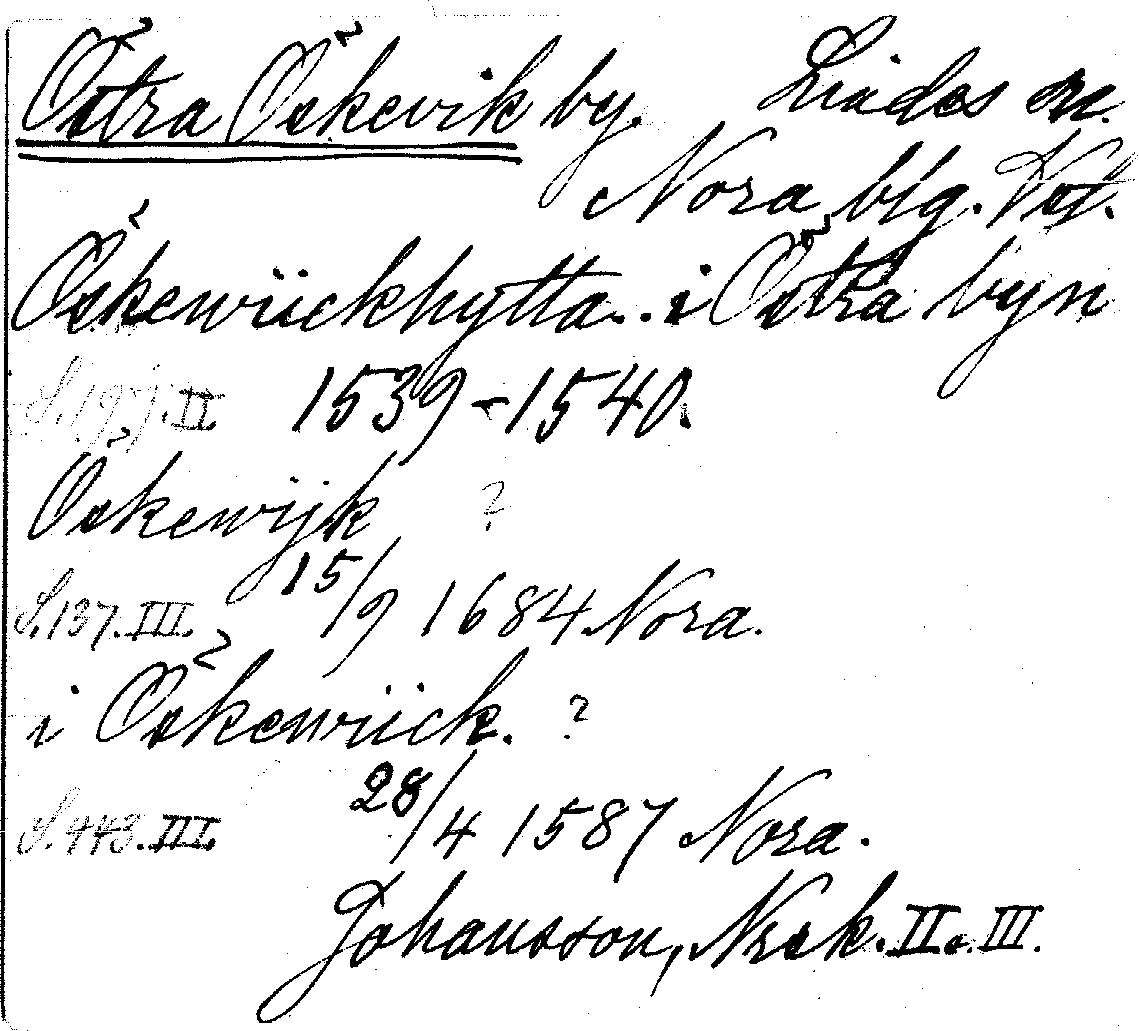 Östra Öskevik by. Lindes o.
Nora blg. Vstm.
Öskewiickhytta . . i Östra byn
S. 197. II. 1539–1540.
Öskewijk ?
S. 137. III. 15/9 1684 Nora.
i Öskewiick. ?
S. 443. III. 28/4 1587 Nora.
Johansson, Nrsk. II o. III.